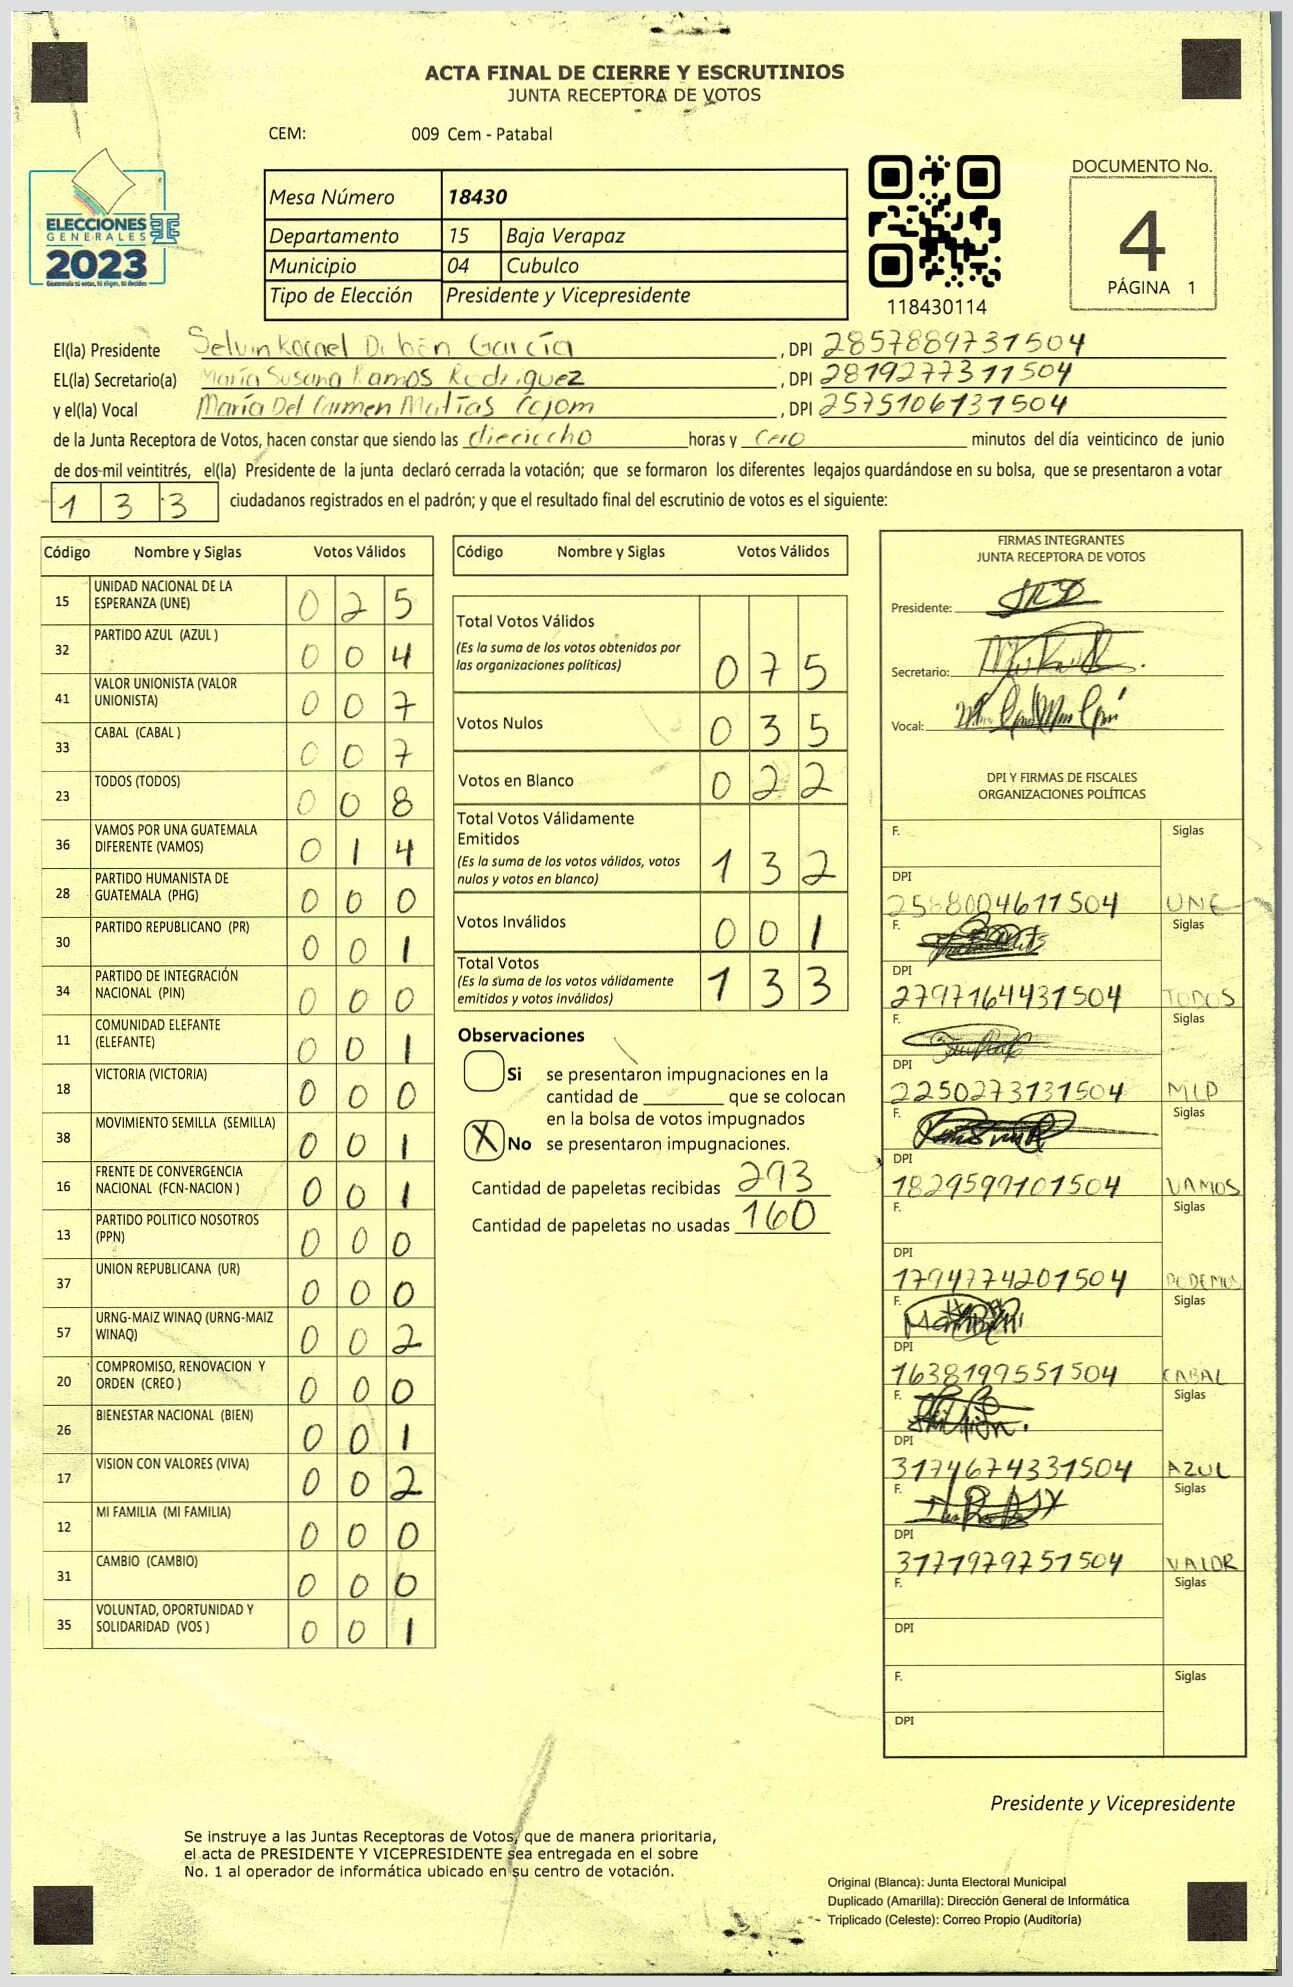 ACTA FINAL DE CIERRE Y ESCRUTINIOS
JUNTA RECEPTORA DE VOTOS
CEM: 009 Cem - Patabal
ELECCIONES
GENERALES
2023
Guatemala tú votas, tú eliges, tú decides
Mesa Número 18430
Departamento 15 Baja Verapaz
Municipio 04 Cubulco
Tipo de Elección Presidente y Vicepresidente
118430114
DOCUMENTO No.
4
PÁGINA 1
El(la) Presidente García , DPI 2857889731504
EL(la) Secretario(a) María Susana Ramos Rodriguez , DPI 2819277311504
y el(la) Vocal María Del Carmen Matías Cojom , DPI 2575106131504
de la Junta Receptora de Votos, hacen constar que siendo las dieciocho horas y cero minutos del día veinticinco de junio
de dos-mil veintitrés, el(la) Presidente de la junta declaró cerrada la votación; que se formaron los diferentes legajos guardándose en su bolsa, que se presentaron a votar
1 3 3 ciudadanos registrados en el padrón; y que el resultado final del escrutinio de votos es el siguiente:
Código Nombre y Siglas Votos Válidos
15 UNIDAD NACIONAL DE LA ESPERANZA (UNE) 0 2 5
32 PARTIDO AZUL (AZUL ) 0 0 4
41 VALOR UNIONISTA (VALOR UNIONISTA) 0 0 7
33 CABAL (CABAL ) 0 0 7
23 TODOS (TODOS) 0 0 8
36 VAMOS POR UNA GUATEMALA DIFERENTE (VAMOS) 0 1 4
28 PARTIDO HUMANISTA DE GUATEMALA (PHG) 0 0 0
30 PARTIDO REPUBLICANO (PR) 0 0 1
34 PARTIDO DE INTEGRACIÓN NACIONAL (PIN) 0 0 0
11 COMUNIDAD ELEFANTE (ELEFANTE) 0 0 1
18 VICTORIA (VICTORIA) 0 0 0
38 MOVIMIENTO SEMILLA (SEMILLA) 0 0 1
16 FRENTE DE CONVERGENCIA NACIONAL (FCN-NACION ) 0 0 1
13 PARTIDO POLITICO NOSOTROS (PPN) 0 0 0
37 UNION REPUBLICANA (UR) 0 0 0
57 URNG-MAIZ WINAQ (URNG-MAIZ WINAQ) 0 0 2
20 COMPROMISO, RENOVACION Y ORDEN (CREO ) 0 0 0
26 BIENESTAR NACIONAL (BIEN) 0 0 1
17 VISION CON VALORES (VIVA) 0 0 2
12 MI FAMILIA (MI FAMILIA) 0 0 0
31 CAMBIO (CAMBIO) 0 0 0
35 VOLUNTAD, OPORTUNIDAD Y SOLIDARIDAD (VOS ) 0 0 1
Código Nombre y Siglas Votos Válidos
Total Votos Válidos
(Es la suma de los votos obtenidos por
las organizaciones políticas) 0 7 5
Votos Nulos 0 3 5
Votos en Blanco 0 2 2
Total Votos Válidamente
Emitidos
(Es la suma de los votos válidos, votos
nulos y votos en blanco) 1 3 2
Votos Inválidos 0 0 1
Total Votos
(Es la suma de los votos válidamente
emitidos y votos inválidos) 1 3 3
Observaciones
Si se presentaron impugnaciones en la
cantidad de ________ que se colocan
en la bolsa de votos impugnados
X No se presentaron impugnaciones.
Cantidad de papeletas recibidas 293
Cantidad de papeletas no usadas 160
FIRMAS INTEGRANTES
JUNTA RECEPTORA DE VOTOS
Presidente:
Secretario:
Vocal:
DPI Y FIRMAS DE FISCALES
ORGANIZACIONES POLÍTICAS
F. Siglas
DPI
2588004611504 UNE
F. Siglas
DPI
2797164431504 TODOS
F. Siglas
DPI
2250273131504 MLP
F. Siglas
DPI
1829599101504 VAMOS
F. Siglas
DPI
1794774201504 PODEMOS
F. Siglas
DPI
1638199551504 CABAL
F. Siglas
DPI
3174674331504 AZUL
F. Siglas
DPI
3171979751504 VALOR
F. Siglas
DPI
F. Siglas
DPI
Presidente y Vicepresidente
Se instruye a las Juntas Receptoras de Votos, que de manera prioritaria,
el acta de PRESIDENTE Y VICEPRESIDENTE sea entregada en el sobre
No. 1 al operador de informática ubicado en su centro de votación.
Original (Blanca): Junta Electoral Municipal
Duplicado (Amarilla): Dirección General de Informática
Triplicado (Celeste): Correo Propio (Auditoría)